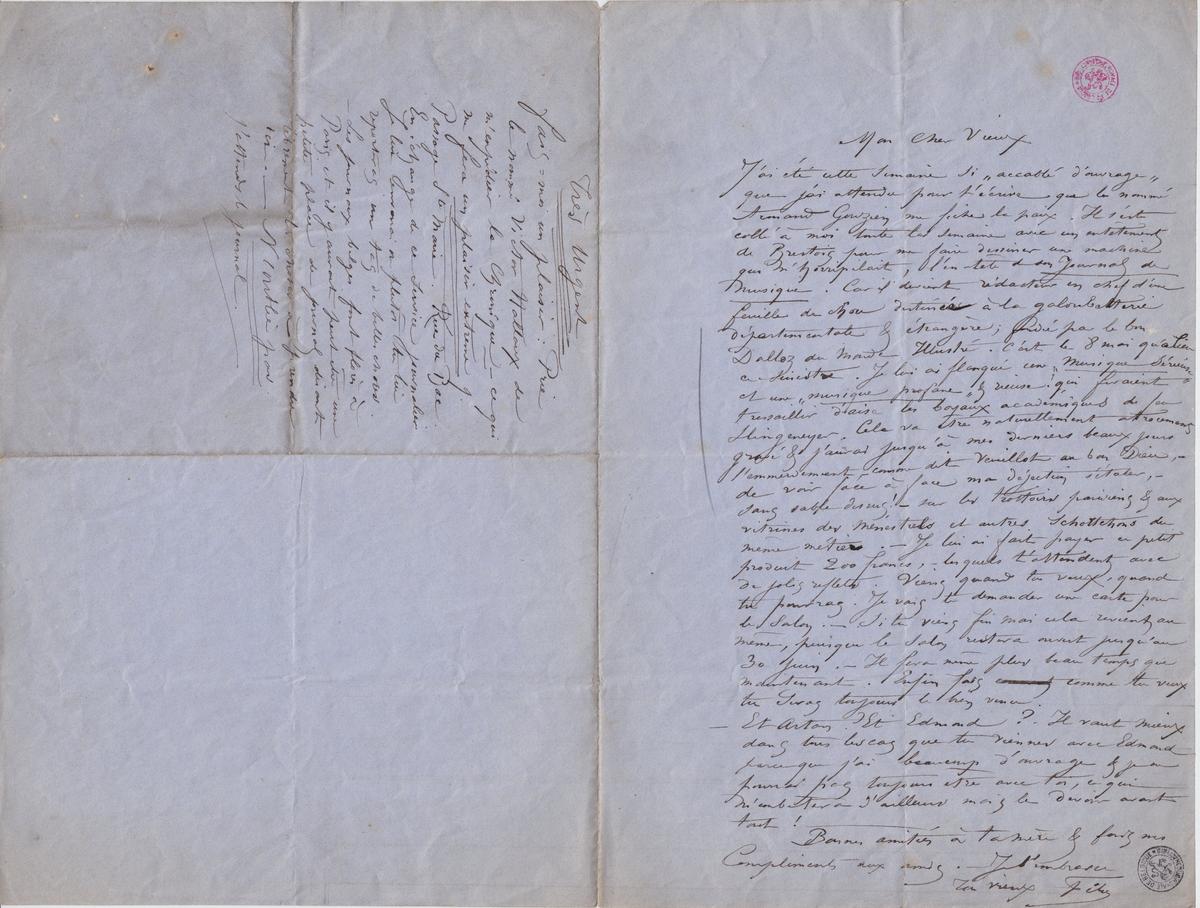 Mon Cher Vieux
J'ai été cette Semaine si „accablé d'ouvrage„
que j'ai attendu pour t'écrire, que le nommé
Armand Gouzien me fiche la paix. Il s'est
collé à moi toute la Semaine avec un entêtement
de Brestois pour me faire dessiner une machine
qui m'horripilait, l'en-tête de son Journal de
Musique Car il devient rédacteur en chef d'une
feuille de chou destinée à la galoubetterie
départementale & étrangère; par le bon
Dalloz du Monde Illustré. C'est le 8 mai qu'a lieu
ce Sinistre. Je lui ai flanqué une „Musique Sérieuse„
et une „musique profane„ & qui feraient
tressaillir d'aise les boyaux académiques de feu
Slingeneyer. Cela va être naturellement atrocement
gravé & j'aurai jusqu'à mes derniers beaux jours
l'emmerdement comme dit Veuillot au bon Dieu, –
de voir face à face ma déjection s'étaler, –
sans sable dessus! – sur les trottoirs parisiens & aux
vitrines des Ménestrels et autres Schottchons du
même métier. – Je lui ai fait payer ce petit
produit 200 francs, – lesquels t'attendent avec
de jolis reflets. Viens quand tu veux, quand
tu pourras. Je vais te demander une carte pour
le Salon. – Si tu viens fin mai cela revient au
même, puisque le Salon restera ouvert jusqu'au
30 Juin. – Il fera même plus beau temps que
maintenant. Enfin fais comme tu veux
tu seras toujours le bien venu.
– Et Artan? Et Edmond? Il vaut mieux
dans tous les cas que tu viennes avec Edmond
parce que j'ai beaucoup d'ouvrage & je ne
pourrai pas toujours être avec toi, ce qui
m'embêtera d'ailleurs mais le devoir avant
tout!
Bonnes amitiés à ta mère & fais mes
Compliments aux amis. Je t'embrasse
Ton vieux Fély
Très Urgent
Fais-moi un plaisir: Prie
le nommé Victor Hallaux de
m'expédier la Chronique – ce qui
me fera un plaisir extrême
Passage Ste Marie. Rue du Bac
En échange de ce service journalier
Je lui
reporterai un tas de belles choses
– des journaux belges font florès à
Paris et il y aurait peut-être une
petite place de journal disant
à prendre
ici –
J'attends le journal.